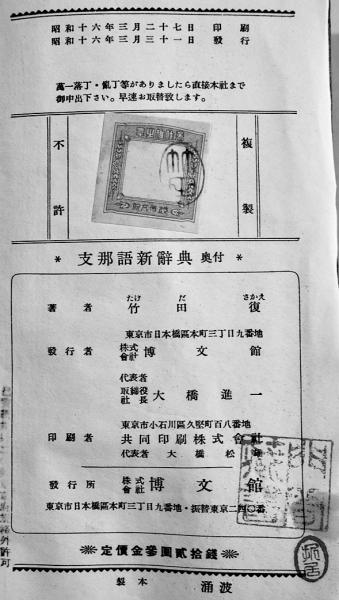 昭和十六年三月二十七日 印刷
昭和十六年三月三十一日 發行
萬一落丁・亂丁等がありましたら直接本社まで
御申出下さい。早速お取替致します。
不許
複製
* 支那語新辭典 奥付 *
著者 竹田復
たけ だ さかえ
東京市日本橋區本町三丁目九番地
發行者 株式會社 博文館
代表者
取締役社長 大橋進一
東京市小石川區久堅町百八番地
印刷者 共同印刷株式會社
代表者 大橋松雄
發行所 株式會社 博文館
東京市日本橋區本町三丁目九番地・振替東京二四〇番
定價金參圓貳拾錢
製本 涌波